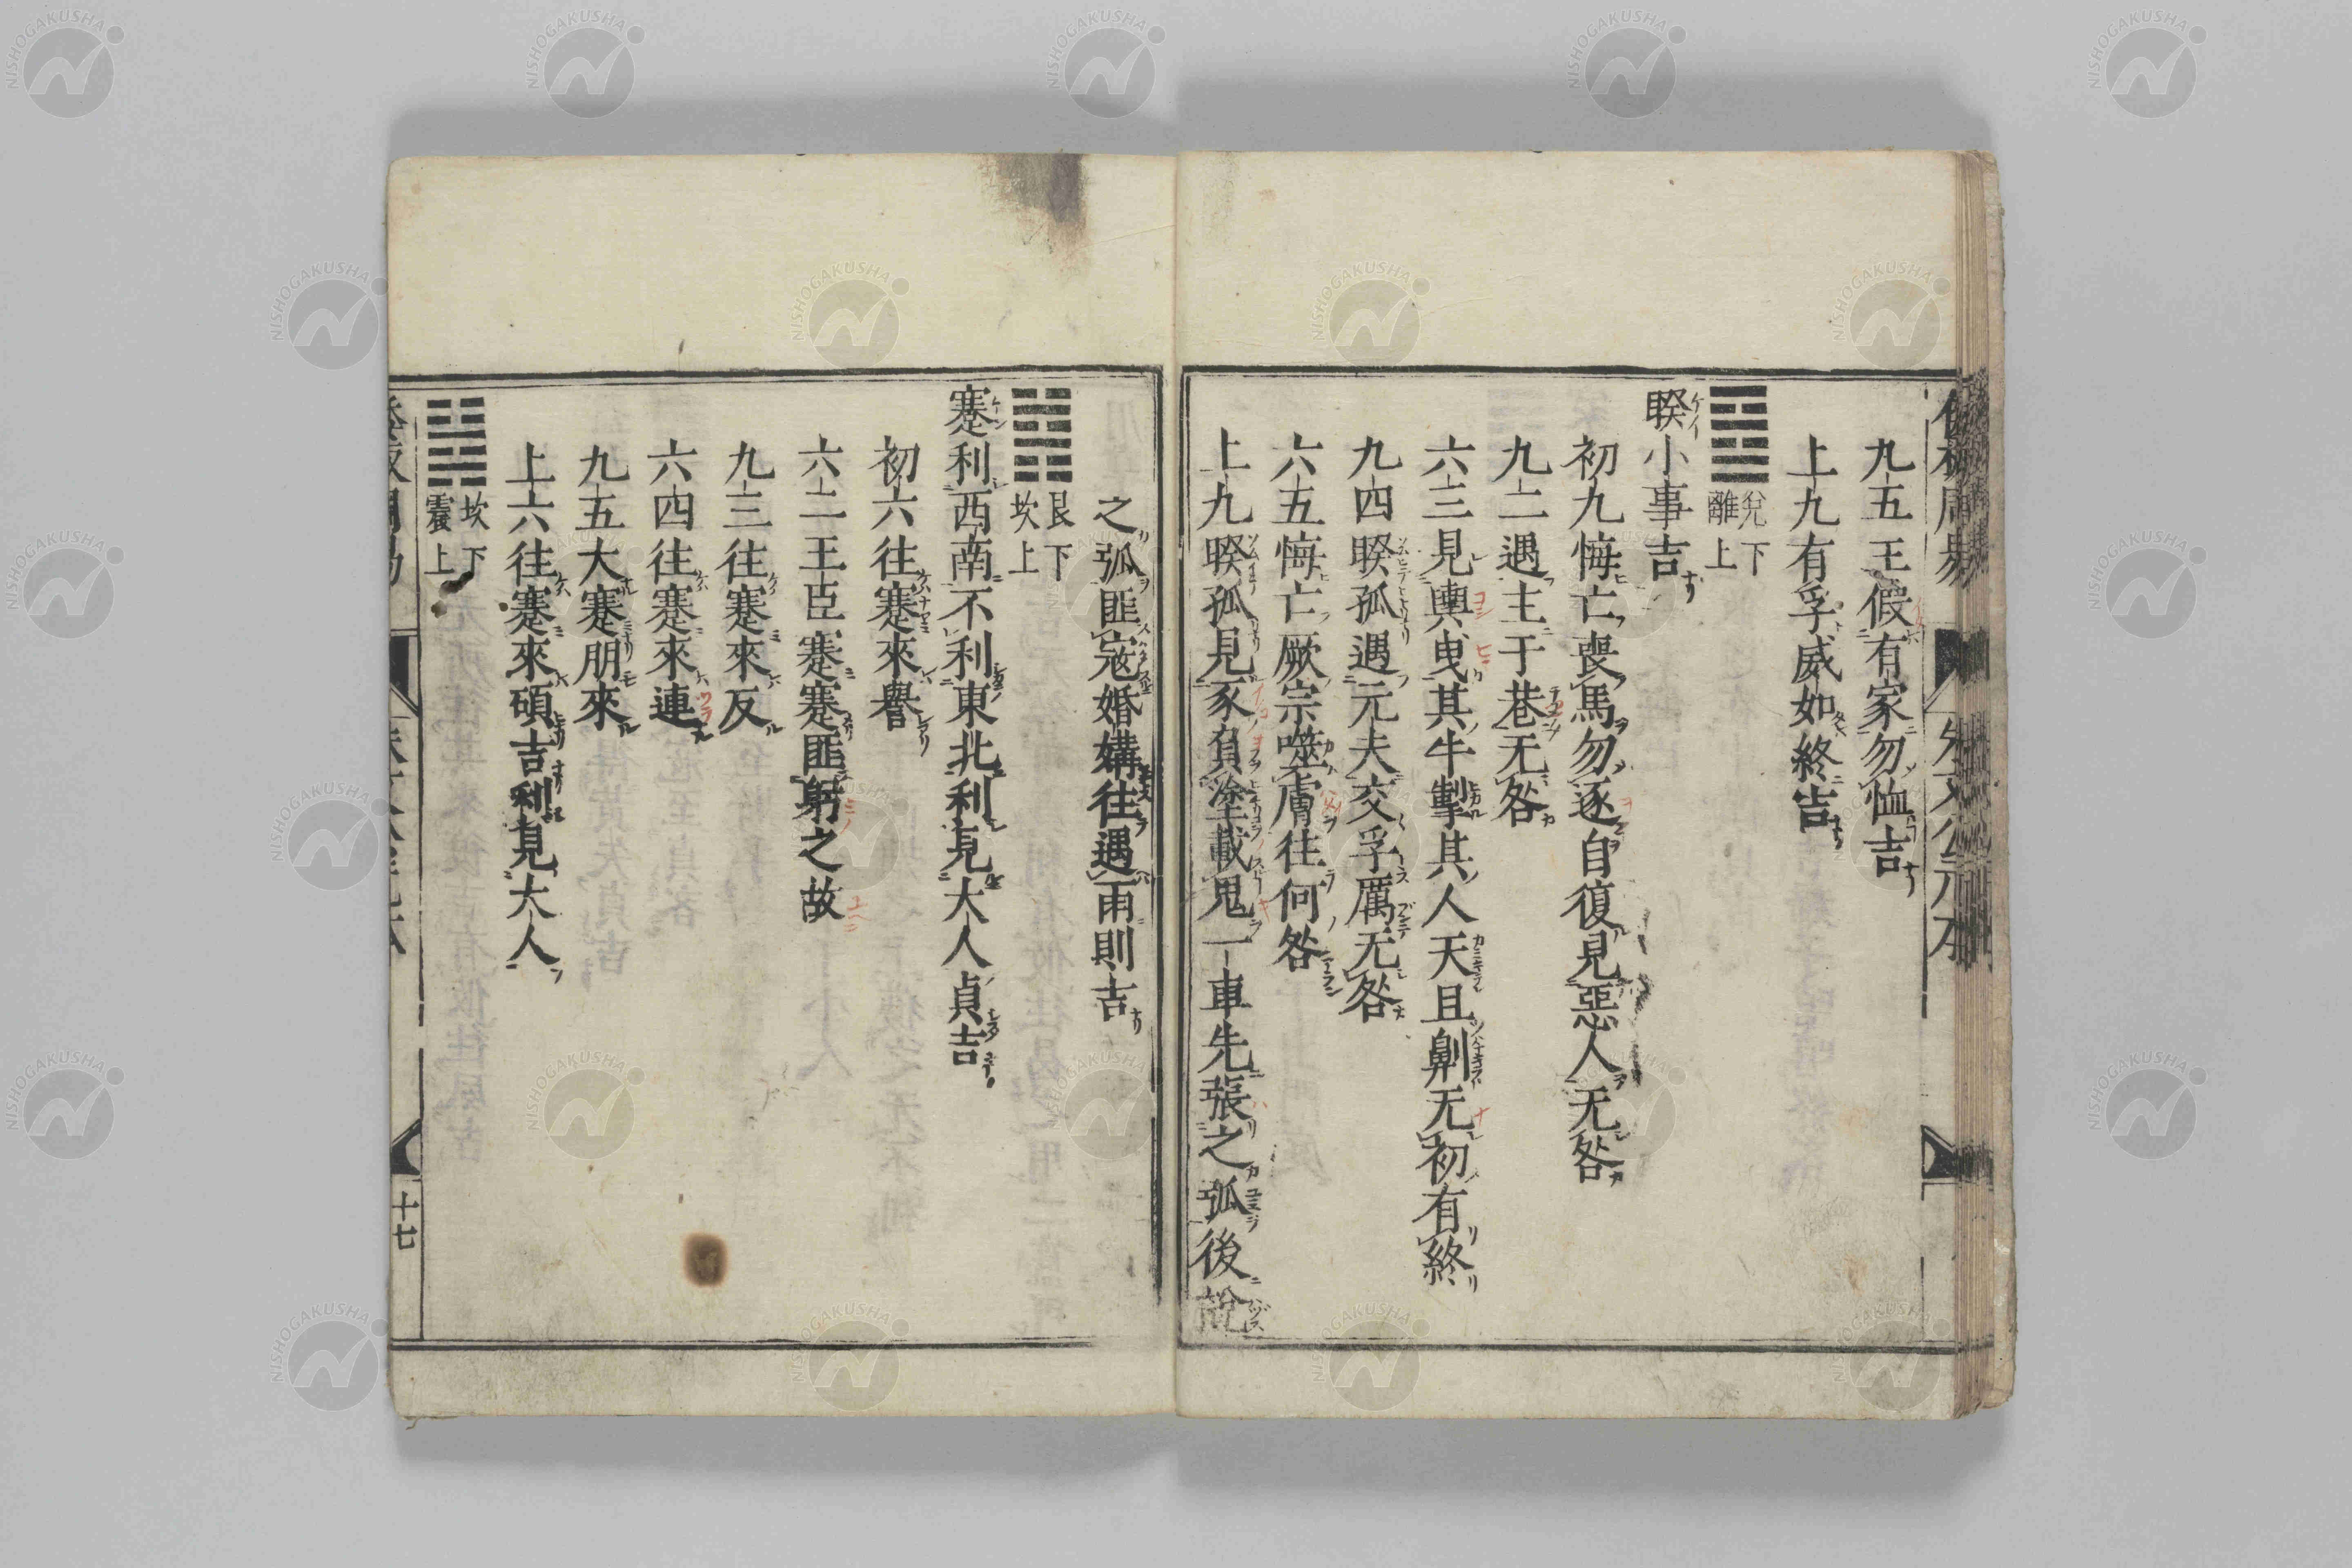 九五王假有家勿恤吉
上九有孚威如終吉
兌下
離上
睽小事吉
初九悔亡喪馬勿逐自復見惡人无咎
九二遇主于巷无咎
六三見輿曳其牛掣其人天且劓无初有終
九四睽孤遇元夫交孚厲无咎
六五悔亡厥宗噬膚往何咎
上九睽孤見豕負塗載鬼一車先張之弧後說
之弧匪寇婚媾往遇雨則吉
艮下
坎上
蹇利西南不利東北利見大人貞吉
初六往蹇來譽
六二王臣蹇蹇匪躬之故
九三往蹇來反
六四往蹇來連
九五大蹇朋來
上六往蹇來碩吉利見大人
坎下
震上
十七
NISHOGAKUSHA